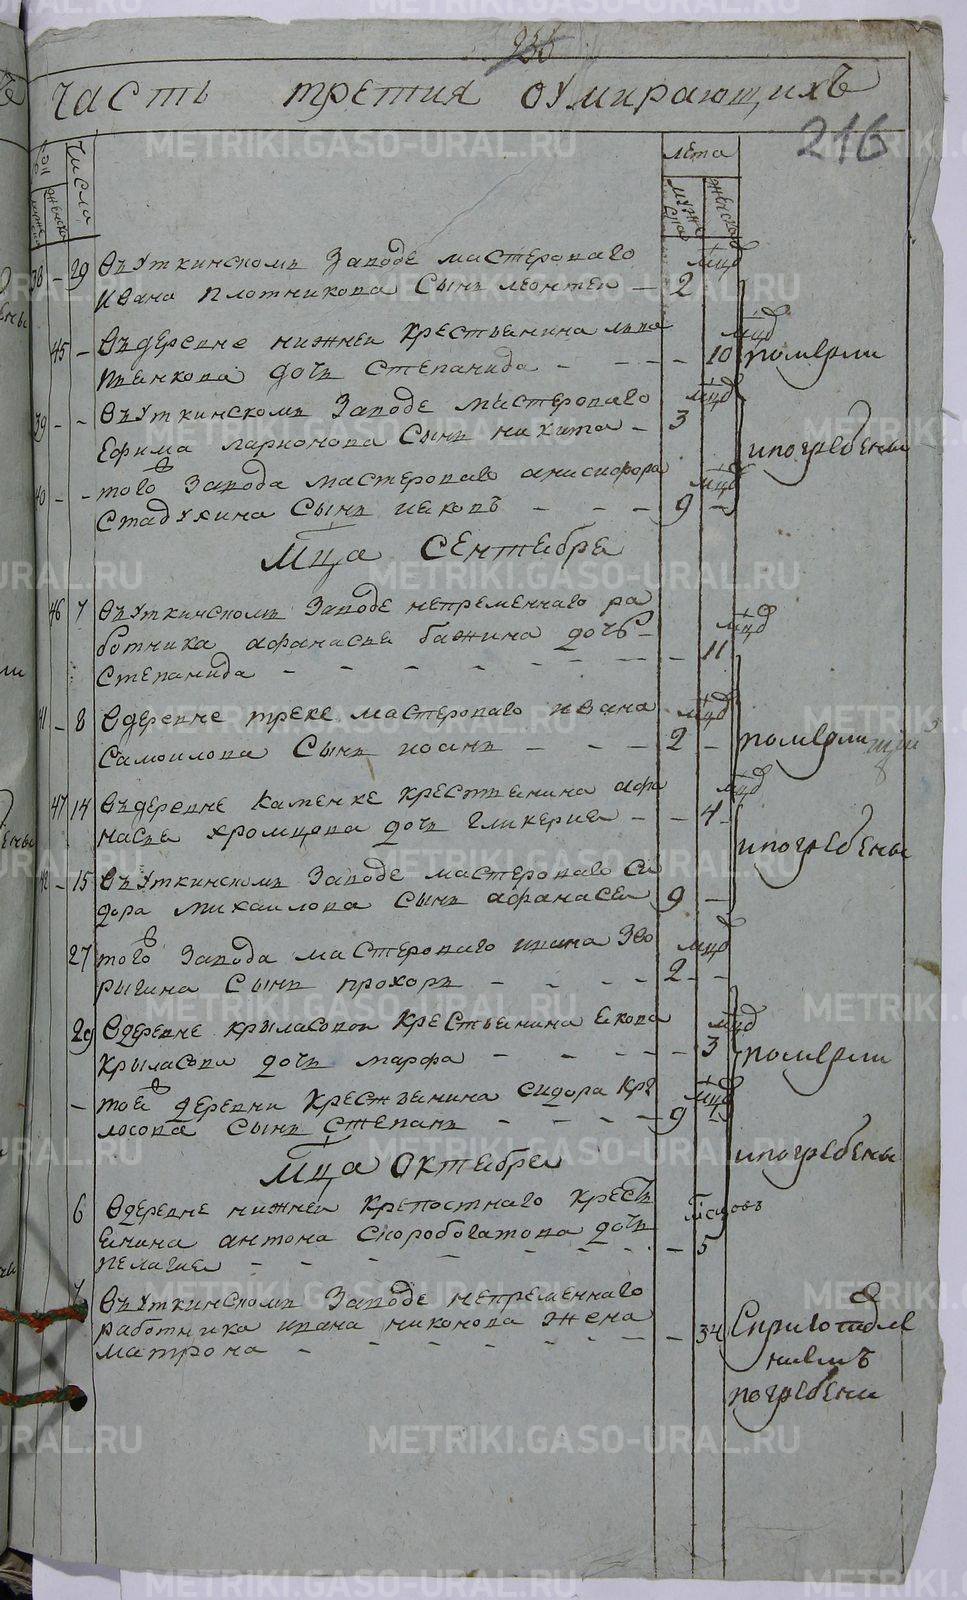 236
Часть третия оумирающихъ
216
числа
лета
мужеска
женска
38 - 29 Въ Уткинскомъ Заводе мастероваго мцъ
Ивана Плотникова Сынъ леонтеи - 2
45 - Въ деревне нижнеи крестьянина мцъ
Пьянкова дочь Степанида - - - - 10 померли
39 - - Въ Уткинскомъ Заводе мастероваго мцъ
Ефима ларионова Сынъ никита - 3 ипогребены
40 - - того Завода мастероваго анисифора мцъ
Стадухина Сынъ иаковъ - - - 9 -
Мца Сентября
46 7 Въ Уткинскомъ Заводе непременнаго ра
ботника афанасья бажина дочь - мцъ
Степанида - - - - - - - - 11
41 - 8 В деревне треке мастероваго ивана мцъ
Самоилова Сынъ иоанъ - - - 2 - померли
47 14 Въ деревне Каменке крестьянина афа мцъ
насья хромцова дочь гликерия - - 4 - ипогребены
42 - 15 Въ Уткинскомъ Заводе мастероваго Си
дора михаилова Сынъ афанасеи 9 -
27 того Завода мастероваго ивана Зво мцъ
рыгина Сынъ прохоръ - - - - 2 - -
29 В деревне крыласовои Крестьянина иакова мцъ
Крыласова дочь марфа - - - - - 3 померли
- тоя деревни Крестьянина сидора Кры мцъ
ласова Сынъ Степанъ - - - - 9 - ипогребены
Мца Октября
6 В деревне нижнеи крепостнаго кресть
янина антона Скоробогатова дочь - 5
пелагия - - - - - - -
7 Въ Уткинскомъ Заводе непременнаго
работника ивана никонова жена - 34
матрона - - - - - - -
погребени
METRIKI.GASO-URAL.RU